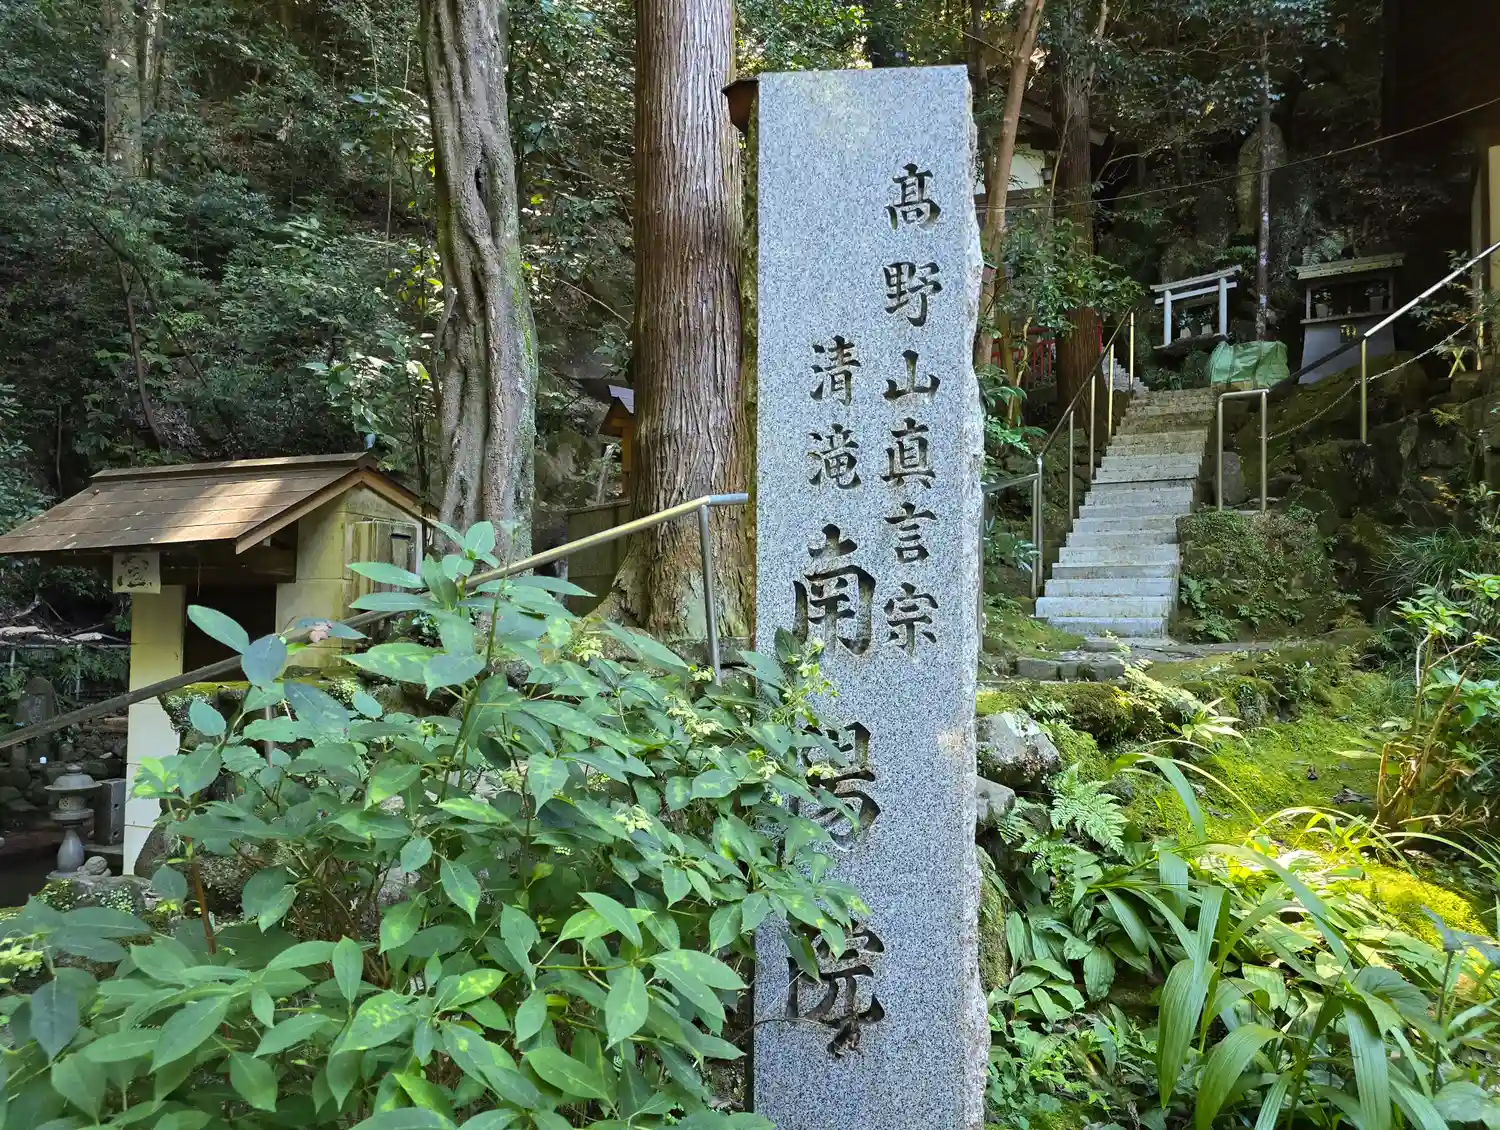 髙野山真言宗
清滝
南陽院